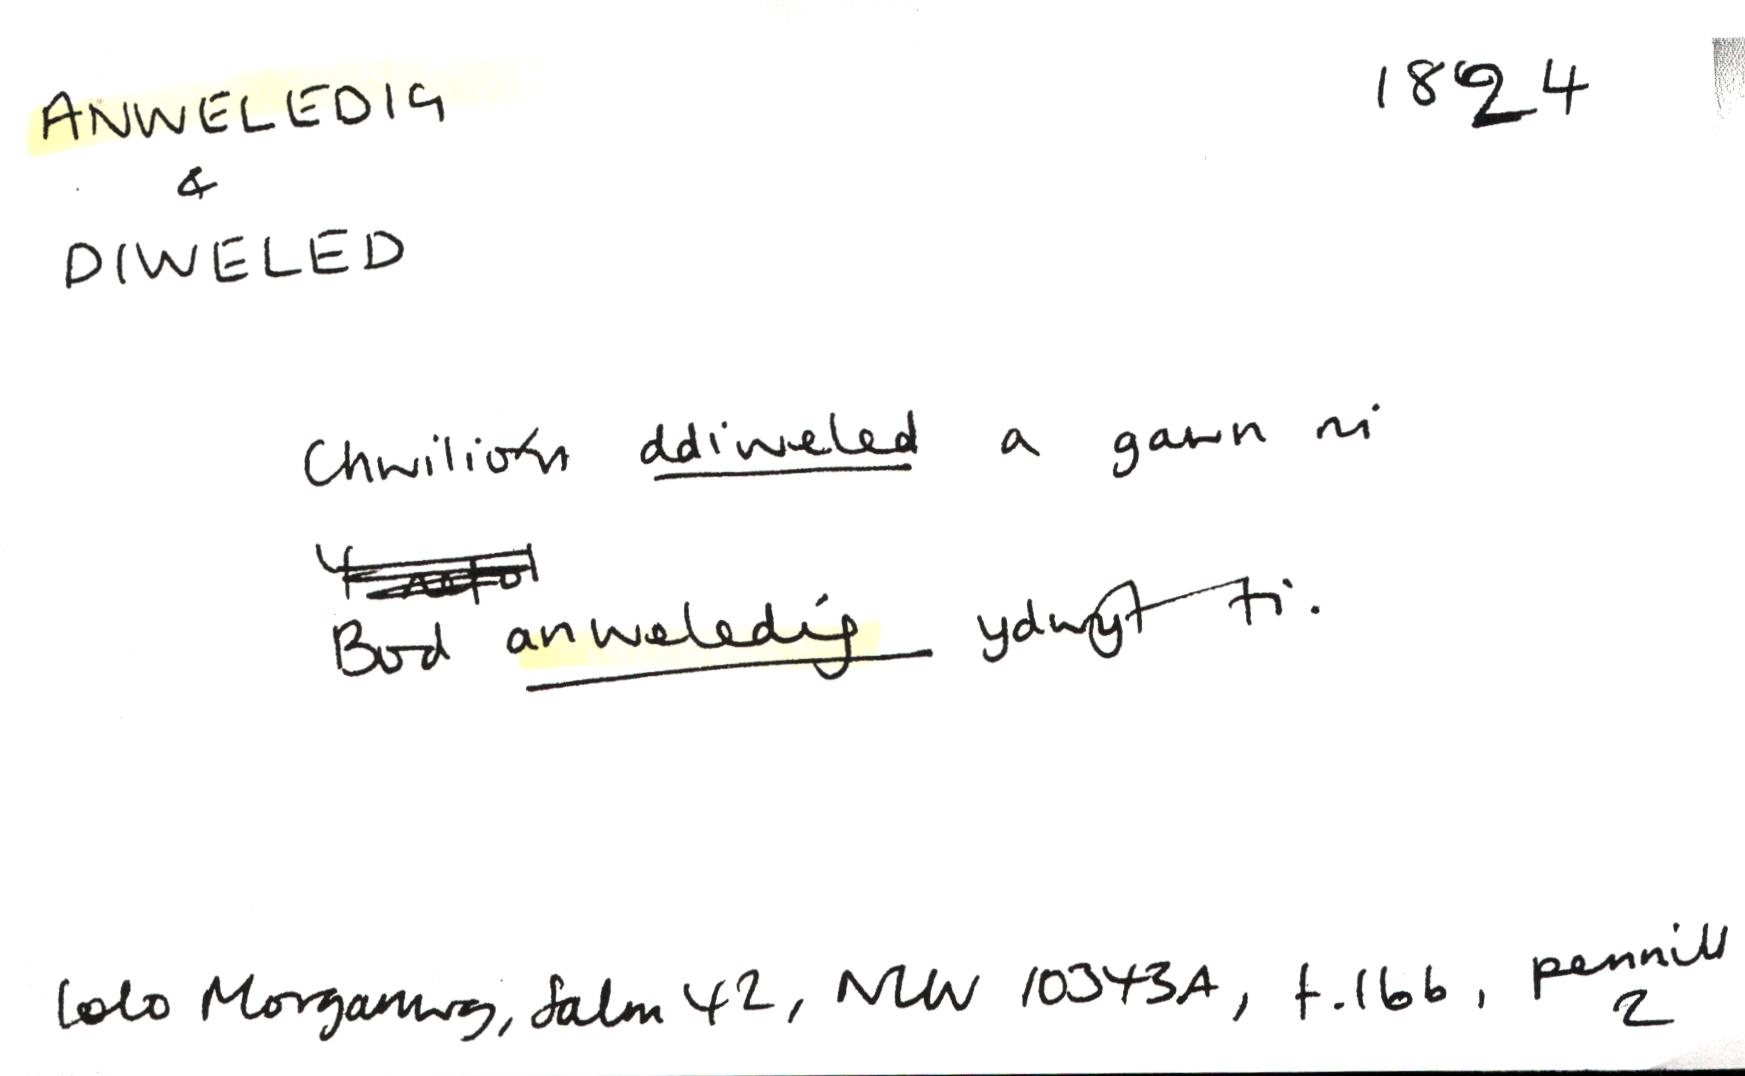 ANWELEDIG 1824
&
DIWELED
Chwiliom ddiweled a gawn ni
Bod anweledig ydwyt ti.
Iolo Morganwg, Salm 42, NLW 10343A, t.166, pennill
2